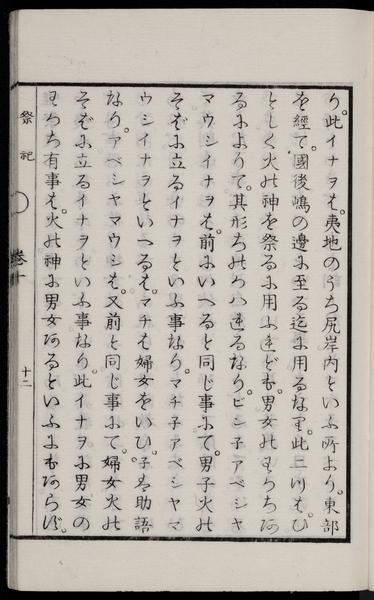 り。此イナヲは。夷地のうち尻岸内といふ所より。東部
を經て。國後嶋の邊に至る迄に用るなり。此二つは。ひ
としく火の神を祭るに用ふれども。男女のわかちあ
るによりて。其形ちのかハれるなり。ピン子アベシヤ
マウシイナヲは。前にいへると同じ事にて。男子火の
そばに立るイナヲといふ事なり。マチ子アベシヤマ
ウシイナヲといへるは。マチは婦女をいひ。子は助語
なり。アベシヤマウシは。又前と同じ事にて。婦女火の
そばに立るイナヲといふ事なり。此イナヲに男女の
わかち有事は。火の神に男女あるといふにもあらず。
祭祀
卷十
十二